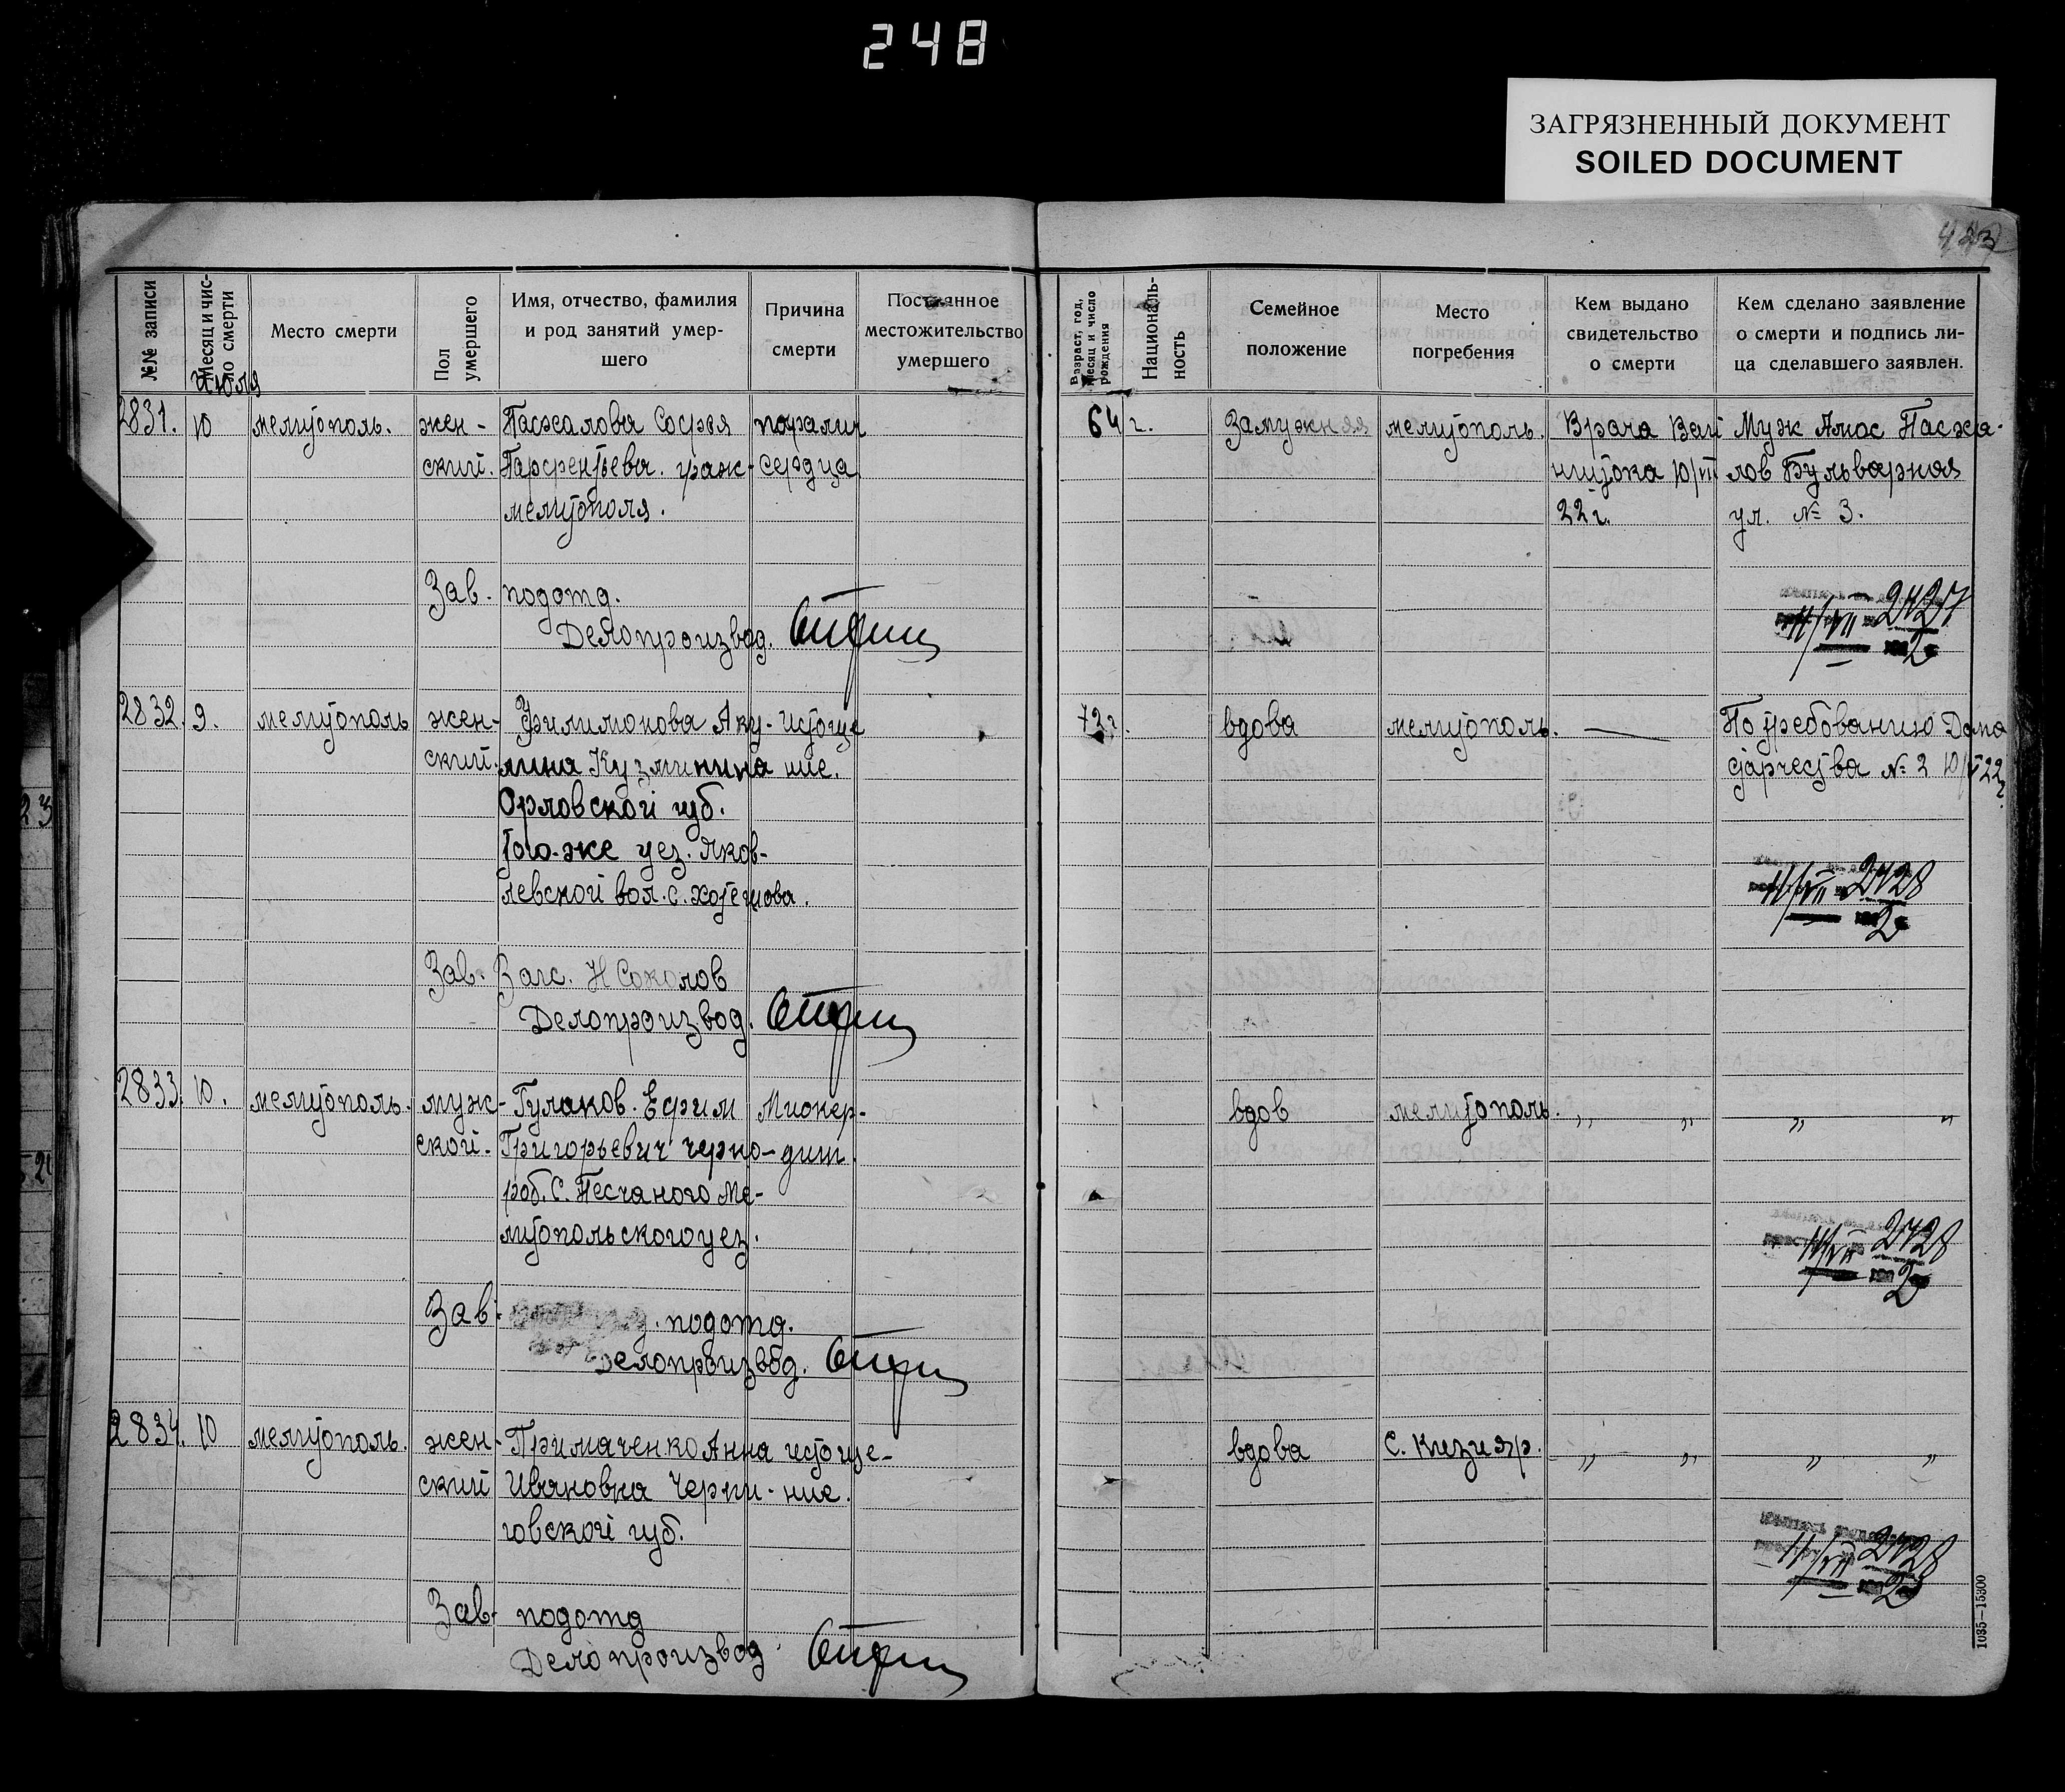 248
ЗАГРЯЗНЕННЫЙ ДОКУМЕНТ
SOILED DOCUMENT
№№ записи
Месяц и чис-
ло смерти
Место смерти
Пол
умершего
Имя, отчество, фамилия
и род занятий умер-
шего
Причина
смерти
Постоянное
местожительство
умершего
Возраст, год,
месяц и число
рождения
Националь-
ность
Семейное
положение
Место
погребения
Кем выдано
свидетельство
о смерти
Кем сделано заявление
о смерти и подпись ли-
ца сделавшего заявлен.
Июля
2831. 10 мелитополь. жен- Пасхалова Софья паралич 64 г. Замужняя мелитополь. Врача Вай Муж Амос Пасха-
ский. Парфентьева. граж- сердца 10/VII лов Бульварная
мелитополя. 22 г. ул. № 3.
Зав. подотд.
Делопроизвод.
11/VII 2427
2
2832. 9. мелитополь жен- Филимонова Аку- истоще 72 г. вдова мелитополь. — По требованию Дома
ский. лина Кузминина ние. старчества № 2 10/V 22 г.
Орловской губ.
того-же уез. Яков-
левской вол. с. Хотетова.
11/VII 2428
2
Зав. Загс. Н Соколов
Делопроизвод.
2833. 10. мелитополь. муж- Гулаков. Ефим Миокер- вдов мелитополь. „ „ „ „
ской. Григорьевич черно- дит.
раб. С. Песчаного Ме-
литопольского уез.
11/VII 2428
2
Зав. подотд.
Делопроизвод.
2834. 10 мелитополь. жен- Примаченко Анна истоще- вдова С. Кизияр. „ „ „ „
ский Ивановна Черни- ние.
говской губ.
11/VII 2428
2
Зав. подотд
Делопроизвод.
1035-15300